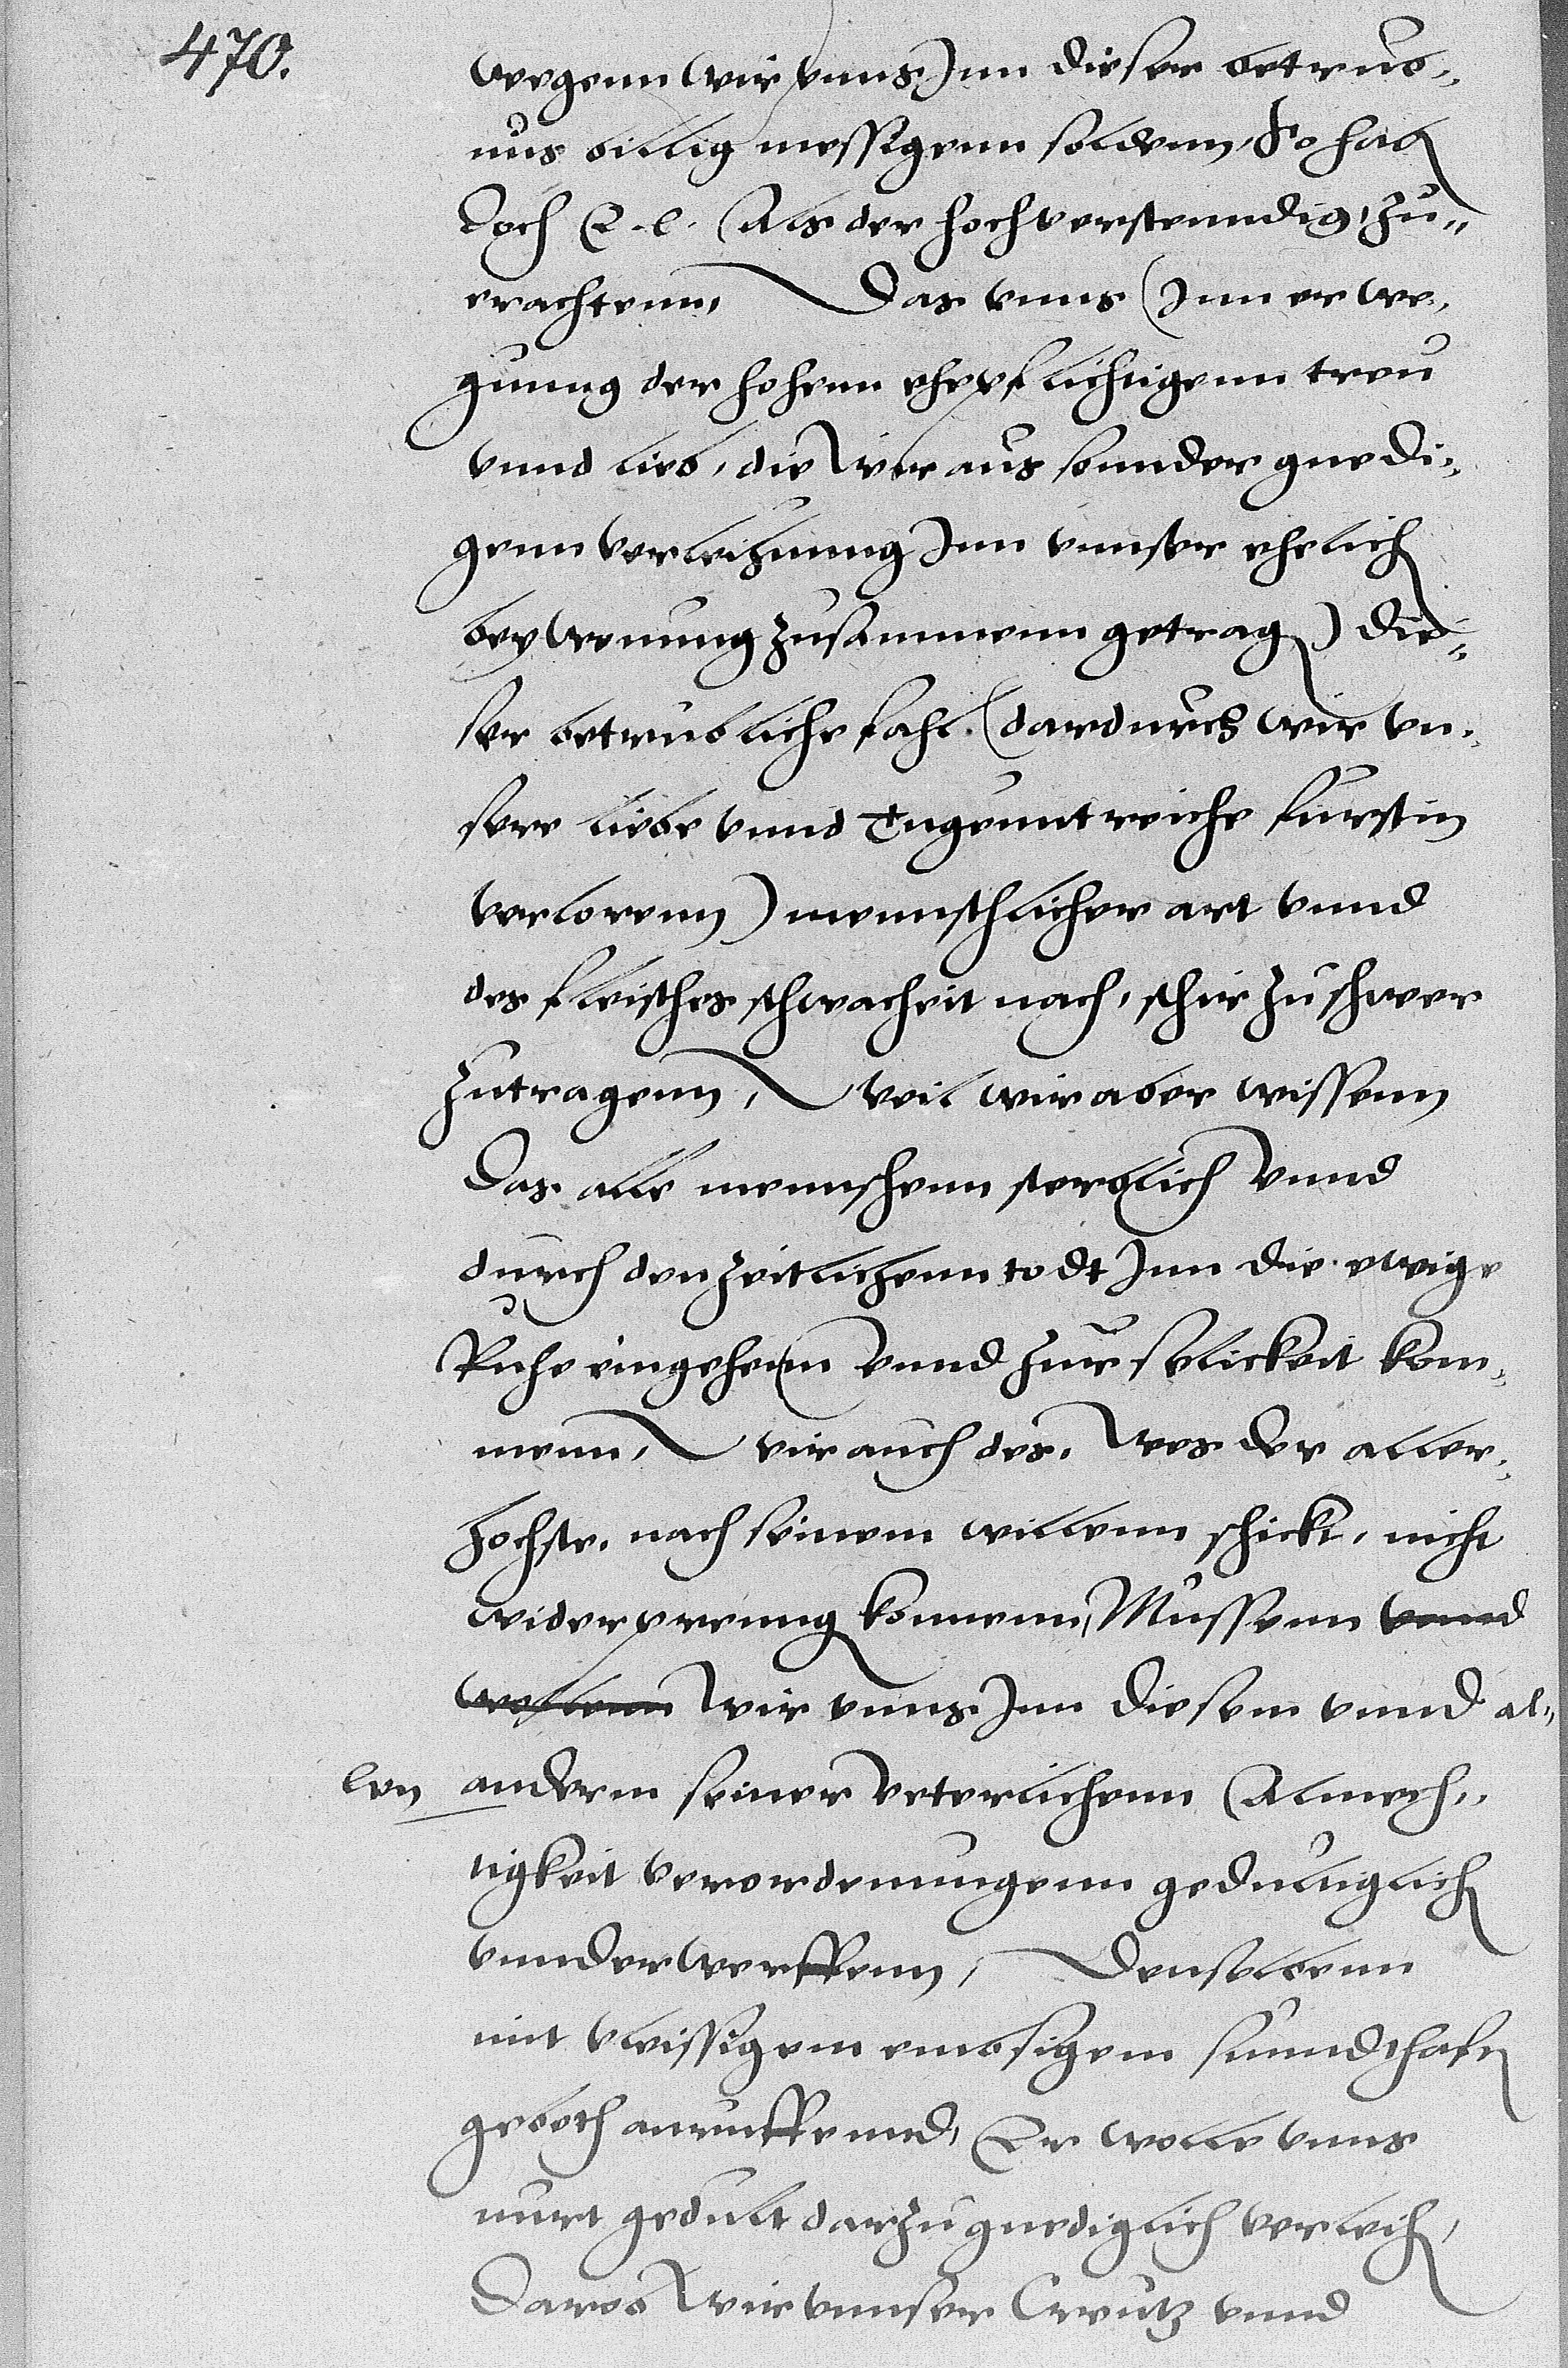 470.
wegenn wir vnns Inn dieser betrub,,
nus billig messigenn soldenn, So hab
doch E. l. Als der hochverstenndig, zu,,
erachtenn, Das vnns (Inn erwe,
gunng der hohenn ehepflichtigenn treu
vnnd lieb, die wir aus sonnder gnedi,,
genn verleihunng Inn vnnser ehelich
beywonung zusammenn getrag) die,,
ser betrubliche fahl. (dardurch wir vn,,
sere liebe vnnd tugenntreiche furstin
verlorenn) mennschlicher art vnnd
des fleisches schwacheit nach, schir zu schwer
zutragenn, weil wir aber wissenn
Das alle mennschenn sterblich vnnd
durch den zeitlichenn todt Inn die ewige
Ruhe eingehenn vnnd zur selickeit kom,,
menn, wir auch des, wes der aller,,
hochste, nach seinem willenn schickt, nicht
widerperung konnenn, Mussenn vnnd
wollenn wir vnns Inn diesem vnnd al,,
len anderm seiner veterlichenn Almech,,
tigkeit verordenungenn gedultiglich
vnnderwerffenn, Denselbenn
mit vleissigem embsigem
gebeth anruffennd, Er wolle vnns
nurt gedult darzu gnediglich verleih,
Darob wir vnnser Creutz vnnd